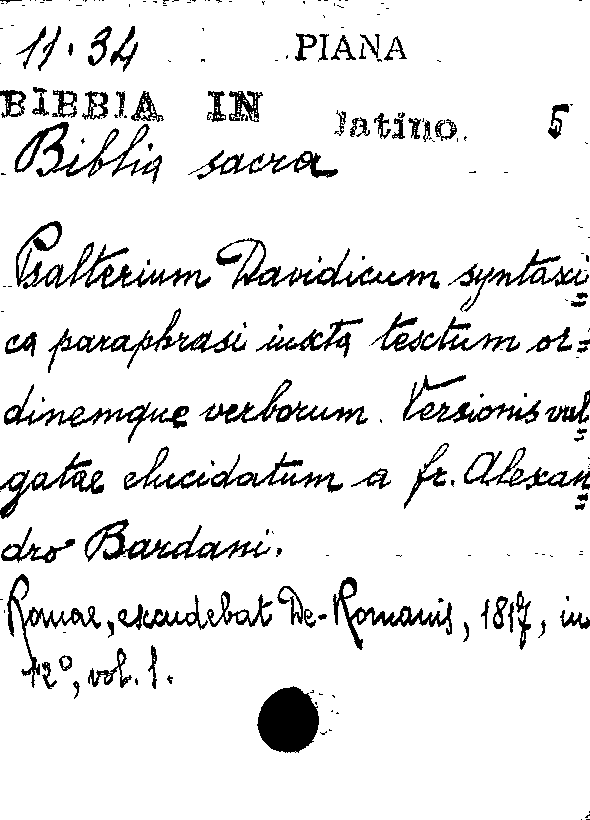 11.34 PIANA
BIBBIA IN latino. 5
Biblia sacra
Psalterium Davidicum syntaxi=
ca paraphrasi iuxta textum or=
dinemque verborum. Versionis vul=
gatae elucidatum a fr. Alexan=
dro Bardani.
Romae, excudebat De-Romanis, 1817, in
12°, vol. 1.